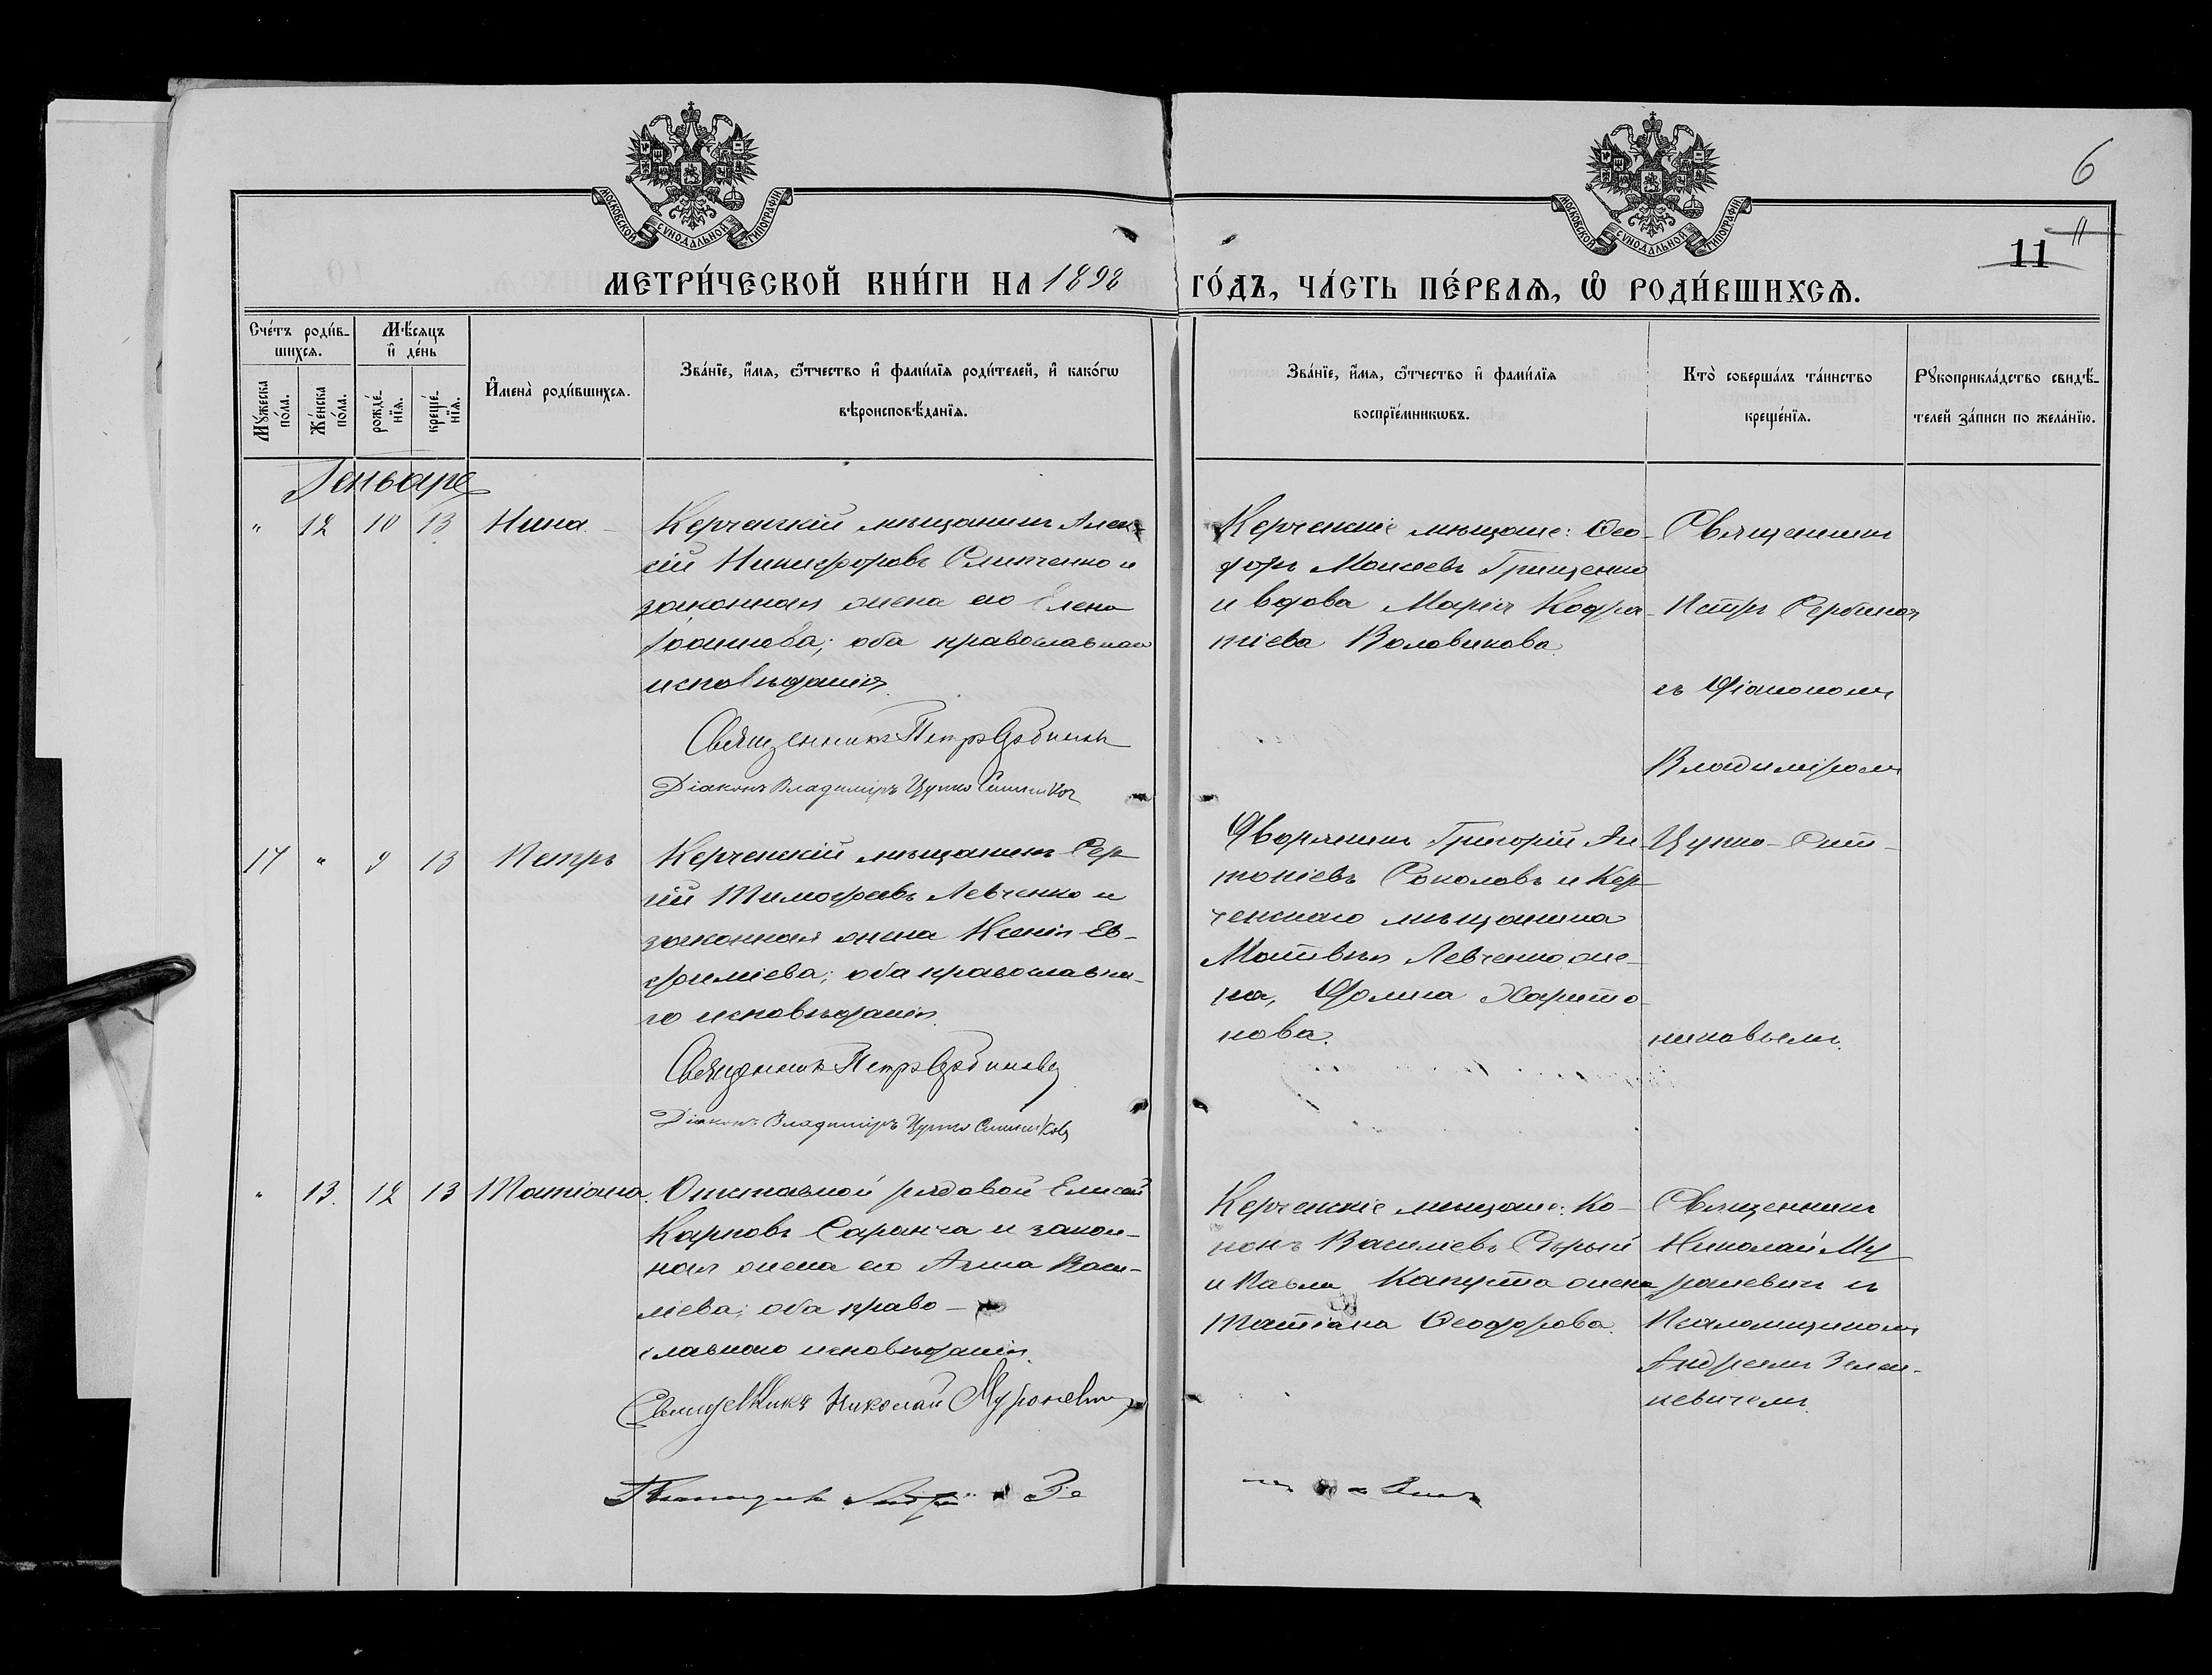 МОСКОВСКОЙ СУНОДАЛЬНОЙ ТИПОГРАФІИ
МОСКОВСКОЙ СУНОДАЛЬНОЙ ТИПОГРАФІИ
6
11
11
МЕТРИ́ЧЕСКОЙ КНИ́ГИ НА 1898 ГО́ДЪ, ЧА́СТЬ ПЕ́РВАѦ, Ѡ҆ РОДИ́ВШИХСѦ.
Сче́тъ роди́в-
шихсѧ.
Мѣ́сѧцъ
и҆ де́нь
Мꙋ́жеска по́ла.
Же́нска по́ла.
рожде́нїѧ.
креще́нїѧ.
И҆мена̀ роди́вшихсѧ.
Зва́нїе, и҆́мѧ, ѻ҆́тчество и҆ фами́лїѧ роди́телей, и҆ како́гѡ
вѣроисповѣ́данїѧ.
Зва́нїе, и҆́мѧ, ѻ҆́тчество и҆ фами́лїѧ
воспрїе́мникѡвъ.
Кто̀ соверша́лъ та́инство
креще́нїѧ.
Рꙋкоприкла́дство свидѣ́-
телей за́писи по жела́нїю.
Геньварѣ
" 12 10 13 Нина
Керченскій мѣщанинъ Алек-
сій Никифоровъ Слипченко и
законная жена его Елена
Іоаннова; оба православнаго
исповѣданія.
Священникъ Петръ Сербиновъ
Діаконъ Владиміръ Цупко Ситниковъ
Керченскіе мѣщане: Ѳео-
доръ Моисеевъ Грищенко
и вдова Марія Кодра-
тіева Воловикова.
Священникъ
Петръ Сербиновъ
съ Діакономъ
Владиміромъ
Цупко-Сит-
никовымъ.
17 " 9 13 Петръ
Керченскій мѣщанинъ Сер-
гій Тимофеевъ Левченко и
законная жена Ксенія Ев-
фиміева; оба православна-
го исповѣданія.
Священникъ Петръ Сербиновъ
Діаконъ Владиміръ Цупко Ситниковъ
Дворянинъ Григорій Ан-
тоніевъ Соколовъ и Кер-
ченскаго мѣщанина
Матвѣя Левченко же-
на, Домна Харито-
нова.
" 13. 12 13 Татіана.
Отставной рядовой Елисей
Карповъ Саранча и закон-
ная жена его Анна Васи-
ліева; оба право-
славнаго исповѣданія.
Священникъ Николай Муроневичъ
Керченскіе мѣщане: Ко-
нонъ Василіевъ Сѣрый
и Павла Капуста жена
Татіана Ѳеодорова.
Священникъ
Николай Му-
роневичъ съ
Псаломщикомъ
Андреемъ Зелен-
кевичемъ.